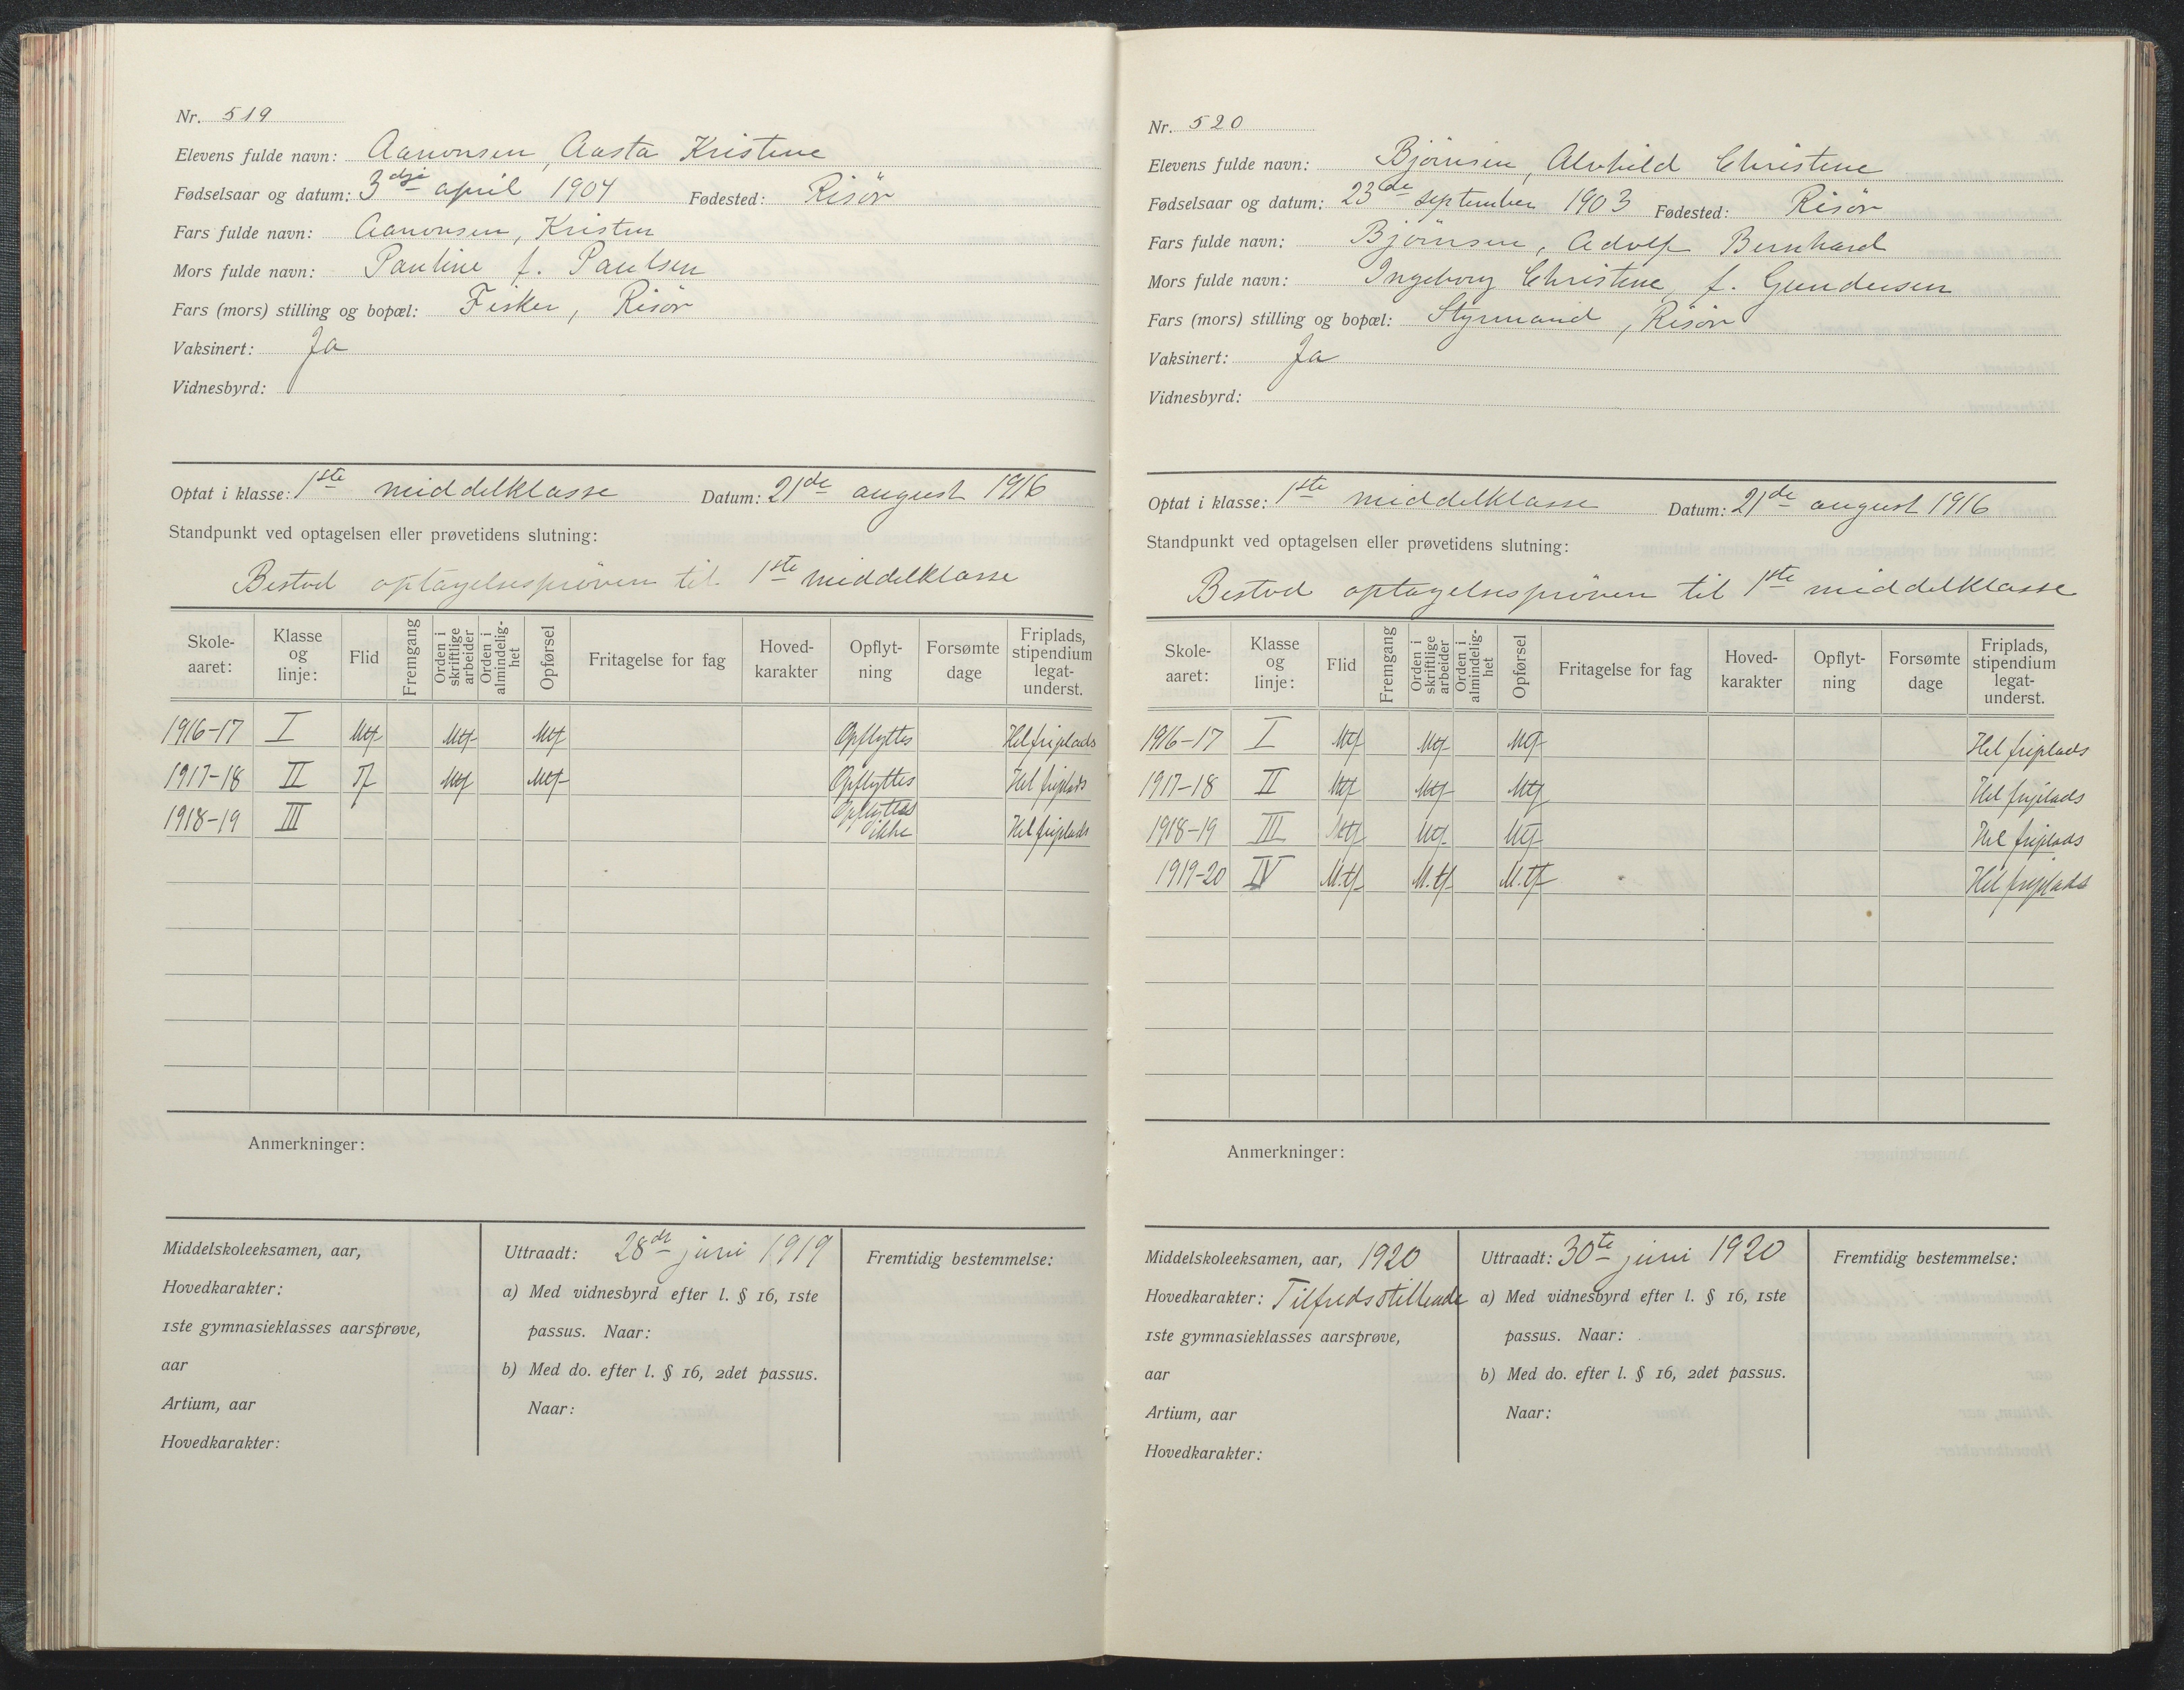 Nr. 519
Elevens fulde navn: Aanonsen, Aasta Kristine
Fødselsaar og datum: 3dje april 1904 Fødested: Risör
Fars fulde navn: Aanonsen, Kristen
Mors fulde navn: Pauline f. Paulsen
Fars (mors) stilling og bopæl: Fisker, Risör
Vaksinert: Ja
Vidnesbyrd:
Optat i klasse: 1ste middelklasse Datum: 21de august 1916
Standpunkt ved optagelsen eller prøvetidens slutning:
Bestod optagelsespröven til 1ste middelklasse
Skole-aaret: Klasse og linje: Flid Fremgang Orden i skriftlige arbeider Orden i almindelig-het Opførsel Fritagelse for fag Hoved-karakter Opflyt-ning Forsømte dage Friplads, stipendium legat-underst.
1916-17 I Mtf Mtf Mtf Opflyttes Hel friplads
1917-18 II Tf Mtf Mtf Opflyttes Hel friplads
1918-19 III Opflyttes ikke Hel friplads
Anmerkninger:
Middelskoleeksamen, aar,
Hovedkarakter:
1ste gymnasieklasses aarsprøve,
aar
Artium, aar
Hovedkarakter:
Uttraadt: 28de juni 1919
a) Med vidnesbyrd efter l. § 16, 1ste
passus. Naar:
b) Med do. efter l. § 16, 2det passus.
Naar:
Fremtidig bestemmelse:
Nr. 520
Elevens fulde navn: Björnsen, Alvhild Christine
Fødselsaar og datum: 23de september 1903 Fødested: Risör
Fars fulde navn: Björnsen, Adolf Bernhard
Mors fulde navn: Ingeborg Christine, f. Gundersen
Fars (mors) stilling og bopæl: Styrmand, Risör
Vaksinert: Ja
Vidnesbyrd:
Optat i klasse: 1ste middelklasse Datum: 21de august 1916
Standpunkt ved optagelsen eller prøvetidens slutning:
Bestod optagelsespröven til 1ste middelklasse
Skole-aaret: Klasse og linje: Flid Fremgang Orden i skriftlige arbeider Orden i almindelig-het Opførsel Fritagelse for fag Hoved-karakter Opflyt-ning Forsømte dage Friplads, stipendium legat-underst.
1916-17 I Mtf Mtf Mtf Hel friplads
1917-18 II Mtf Mtf Mtf Hel friplads
1918-19 III Mtf Mtf Mtf Hel friplads
1919-20 IV M.tf M.tf M.tf Hel friplads
Anmerkninger:
Middelskoleeksamen, aar, 1920
Hovedkarakter: Tilfredsstillende
1ste gymnasieklasses aarsprøve,
aar
Artium, aar
Hovedkarakter:
Uttraadt: 30te juni 1920
a) Med vidnesbyrd efter l. § 16, 1ste
passus. Naar:
b) Med do. efter l. § 16, 2det passus.
Naar:
Fremtidig bestemmelse: